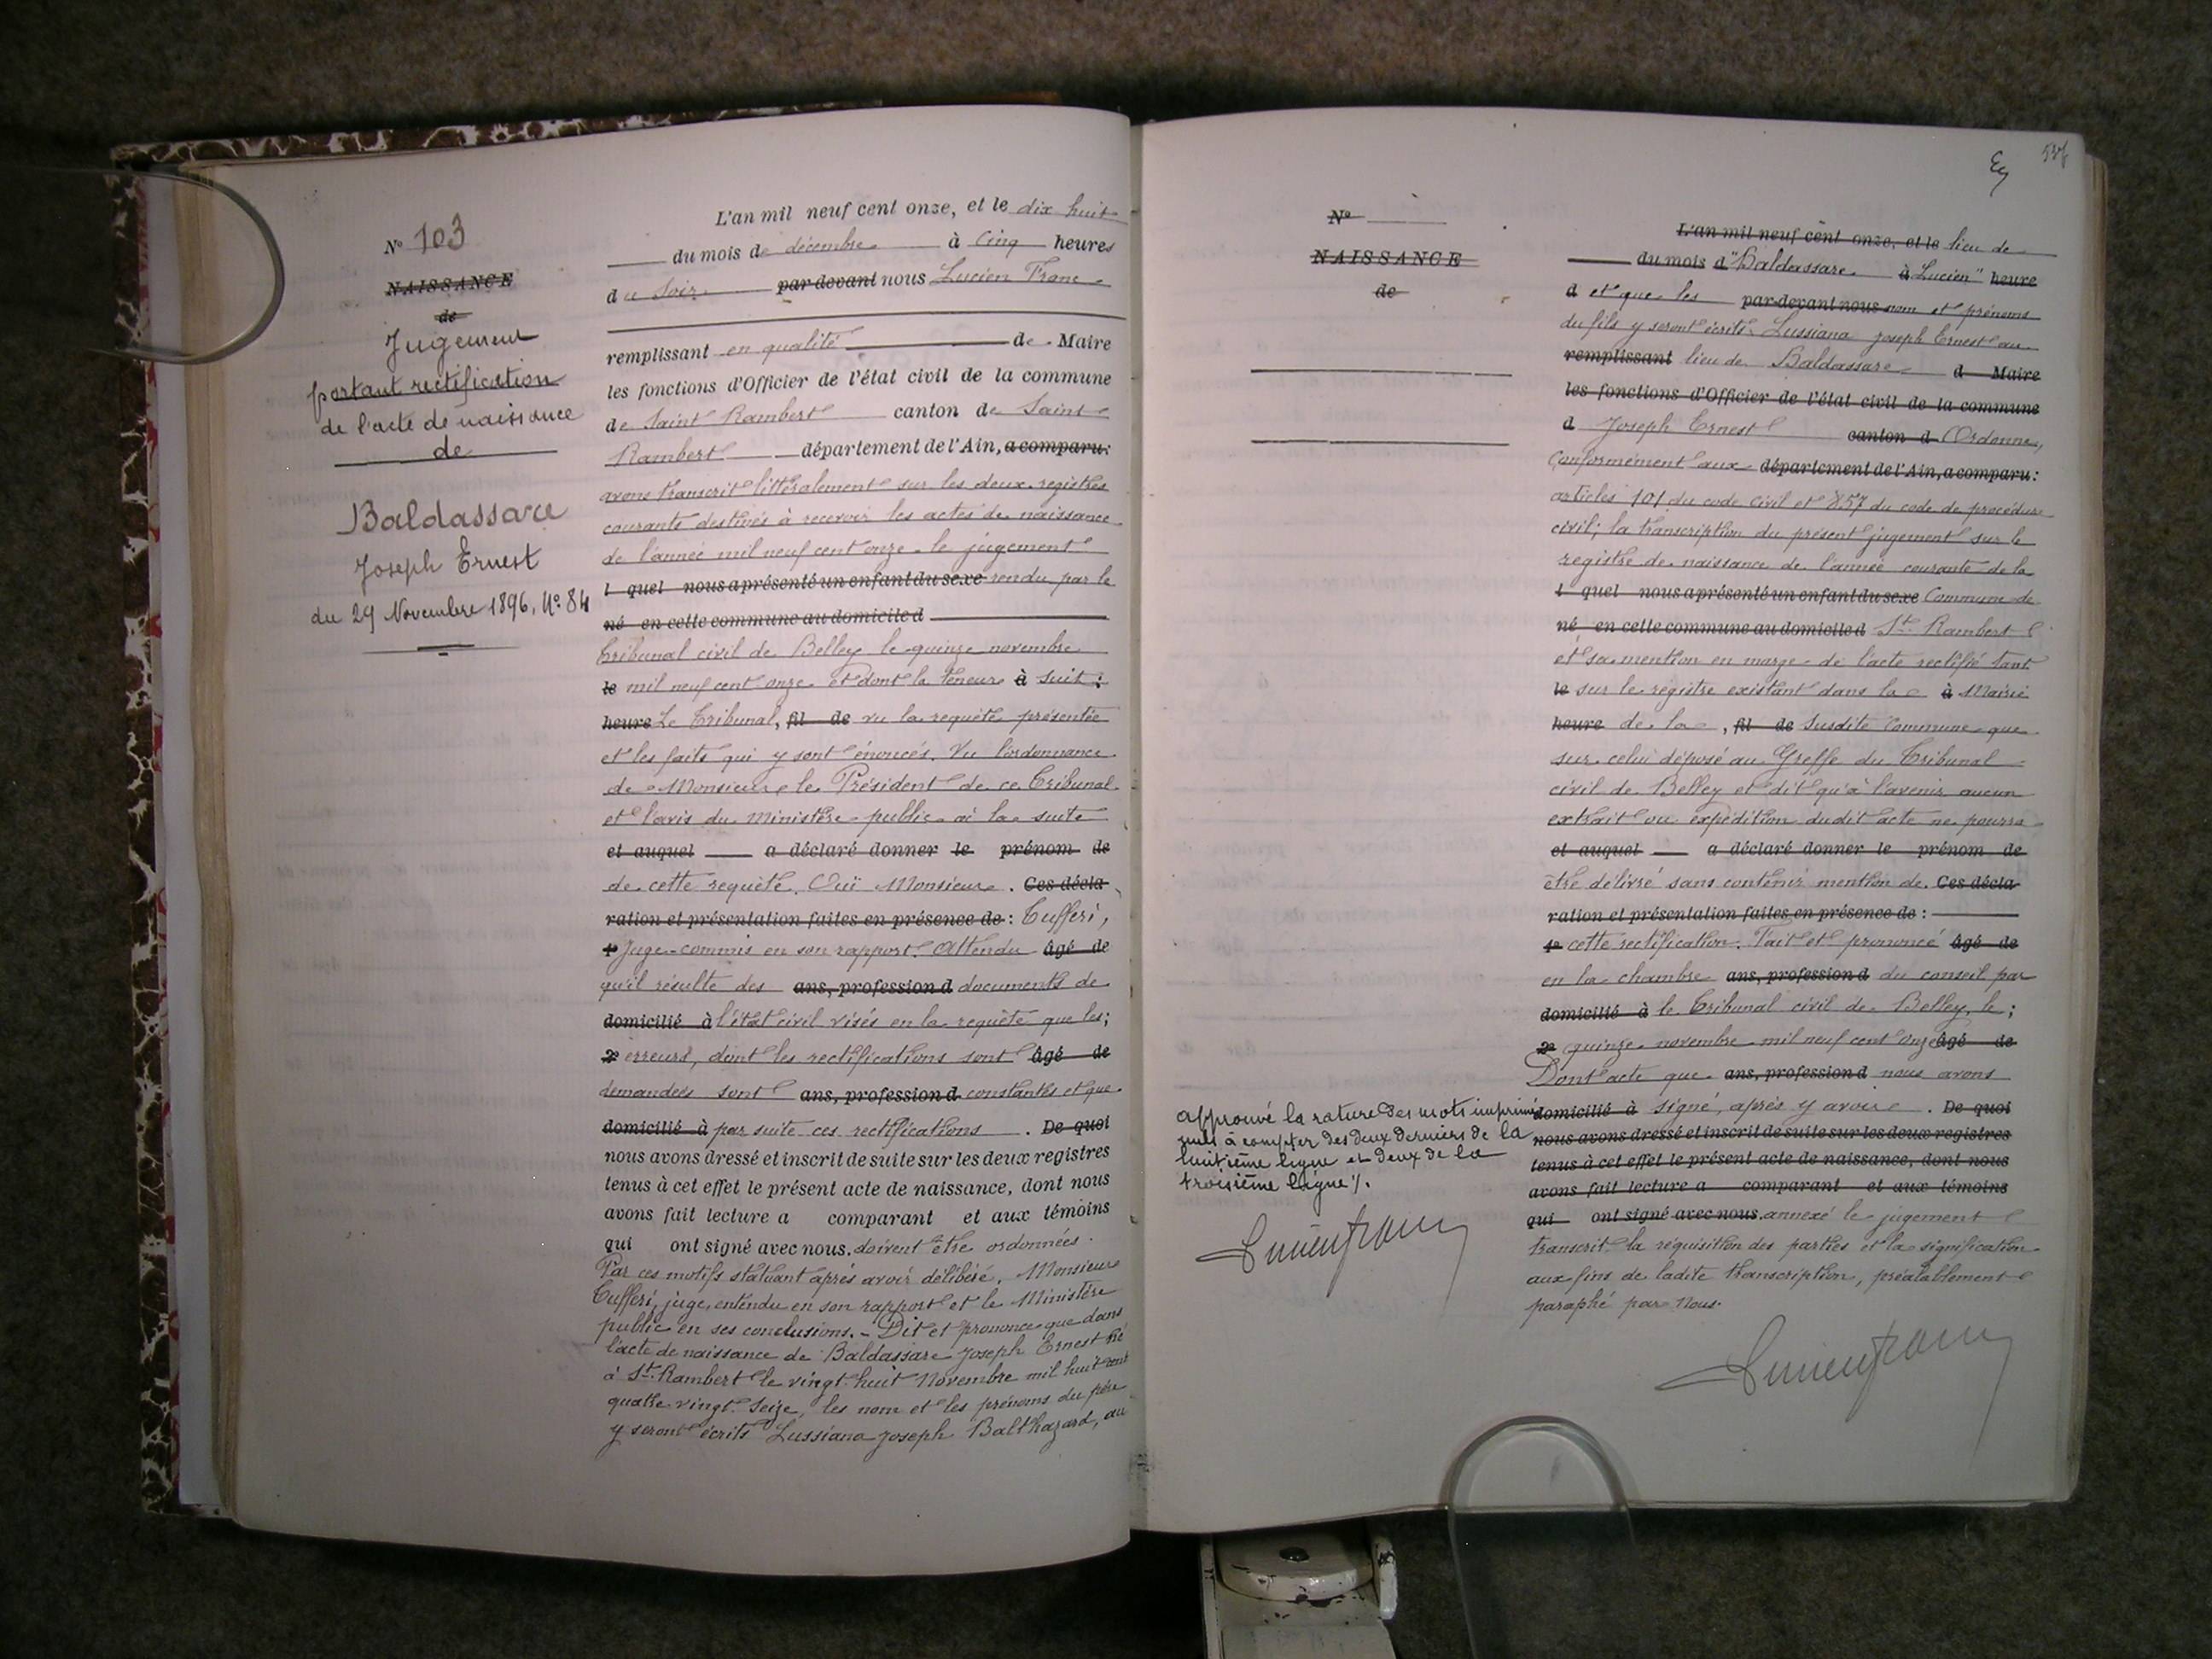 Nº 103
NAISSANCE
de
Jugement
portant rectification
de l'acte de naissance
de
Baldassare
Joseph Ernest
du 29 Novembre 1896, Nº 84
L'an mil neuf cent onze, et le dix huit
du mois de décembre à Cinq heures
du Soir par devant nous Lucien Franc
remplissant en qualité de Maire
les fonctions d'Officier de l'état civil de la commune
de Saint Rambert canton de Saint
Rambert département de l'Ain, a comparu:
avons transcrit littéralement sur les deux registres
courants destinés à recevoir les actes de naissance
de l'année mil neuf cent onze le jugement
l quel nous a présenté un enfant du sexe rendu par le
né en cette commune au domicile d
Tribunal civil de Belley le quinze novembre
le mil neuf cent onze et dont la teneur à suit :
heure Le Tribunal, fil de vu la requête présentée
et les faits qui y sont énoncés. Vu l'ordonnance
de Monsieur le Président de ce Tribunal
et l'avis du Ministère public à la suite
et auquel a déclaré donner le prénom de
de cette requête. Ouï Monsieur. Ces décla
ration et présentation faites en présence de : Tufferi,
1º Juge-commis en son rapport. Attendu âgé de
qu'il résulte des ans, profession d documents de
domicilié à l'état civil visés en la requête que les;
2º erreurs, dont les rectifications sont âgé de
demandées sont ans, profession d constantes et que
domicilié à par suite ces rectifications . De quoi
nous avons dressé et inscrit de suite sur les deux registres
tenus à cet effet le présent acte de naissance, dont nous
avons fait lecture a comparant et aux témoins
qui ont signé avec nous. doivent être ordonnées.
Par ces motifs statuant après avoir délibéré, Monsieur
Tufferi, juge, entendu en son rapport et le Ministère
public en ses conclusions. - Dit et prononce que dans
l'acte de naissance de Baldassare Joseph Ernest né
à St. Rambert le vingt-huit Novembre mil huit cent
quatre vingt seize, les nom et les prénoms du père
y seront écrits Lussiana Joseph Balthazard, au
537
Nº
NAISSANCE
de
L'an mil neuf cent onze, et le lieu de
du mois d "Baldassare à Lucien" heure
d et que les par-devant nous nom et prénoms
du fils y seront écrits Lussiana Joseph Ernest au
remplissant lieu de Baldassare d Maire
les fonctions d'Officier de l'état civil de la commune
d Joseph Ernest canton d Ordonne,
Conformément aux département de l'Ain, a comparu:
articles 101 du code Civil et 857 du code de procédure
civil; la transcription du présent jugement sur le
registre de naissance de l'année courante de la
l quel nous a présenté un enfant du sexe Commune de
né en cette commune au domicile d St. Rambert
et sa mention en marge de l'acte rectifié tant
le sur le registre existant dans la à Mairie
heure de la , fil de susdite Commune que
sur celui déposé au Greffe du Tribunal
civil de Belley et dit qu'à l'avenir aucun
extrait ou expédition dudit acte ne pourra
et auquel a déclaré donner le prénom de
être délivré sans contenir mention de. Ces décla
ration et présentation faites en présence de :
1º cette rectification. Fait et prononcé âgé de
en la chambre ans, profession d du conseil par
domicilié à le Tribunal civil de Belley, le ;
2º quinze novembre mil neuf cent onze âgé de
Dont acte que ans, profession d nous avons
domicilié à signé, après y avoir . De quoi
nous avons dressé et inscrit de suite sur les deux registres
tenus à cet effet le présent acte de naissance, dont nous
avons fait lecture a comparant et aux témoins
qui ont signé avec nous. annexé le jugement
transcrit la réquisition des parties et la signification
aux fins de ladite transcription, préalablement
paraphé par Nous.
Lucien Franc
approuvé la rature des mots imprimés
nuls à compter des deux derniers de la
huitième ligne et deux de la
troisième ligne /.
Lucien Franc